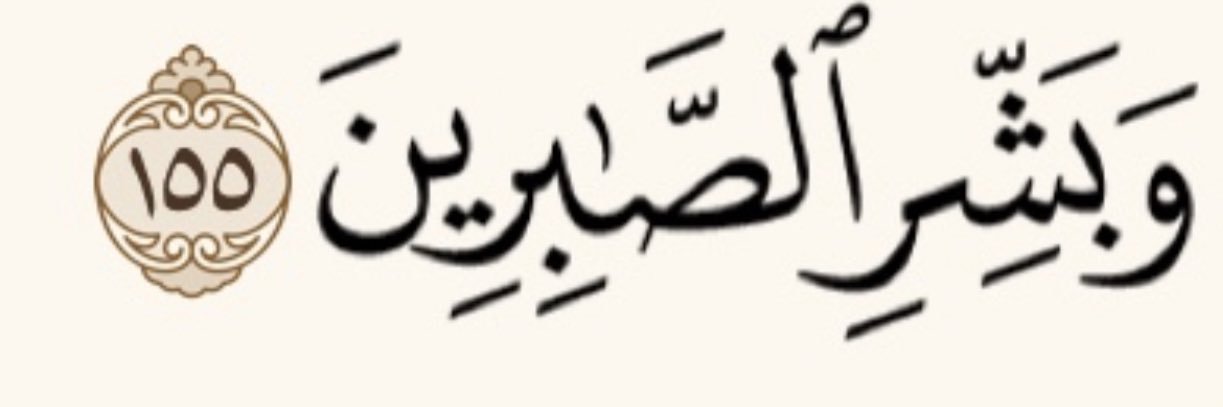 وَبَشِّرِ ٱلصَّـٰبِرِينَ ١٥٥